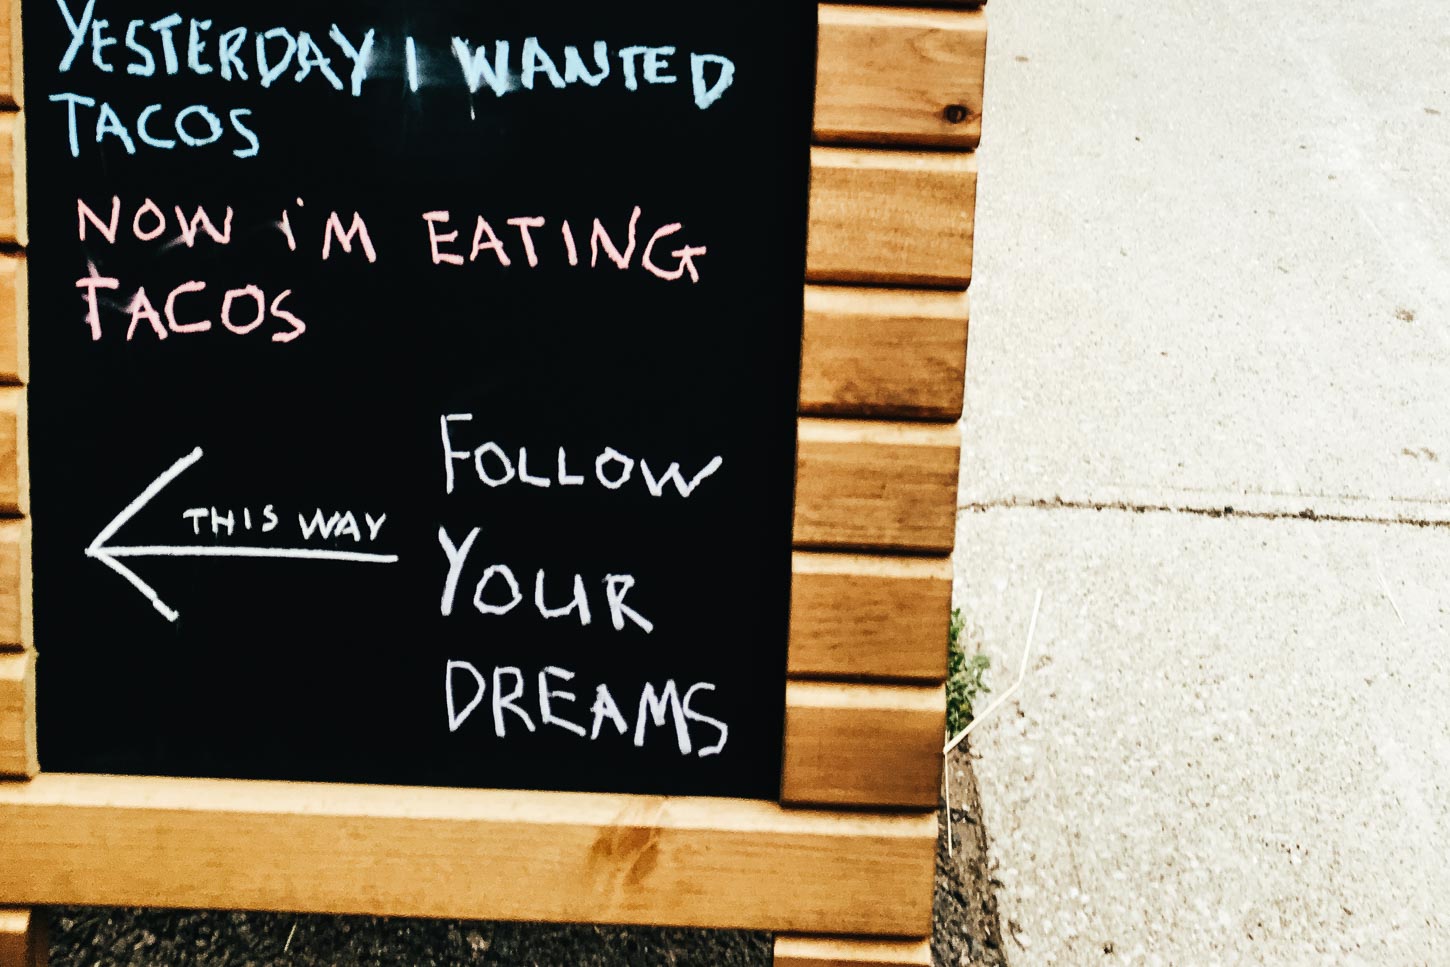 YESTERDAY I WANTED
TACOS
NOW i'M EATING
TACOS
FOLLOW
THIS WAY
YOUR
DREAMS